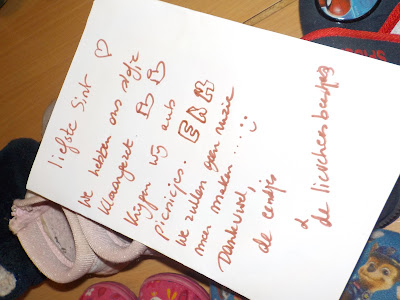 liefste Sint
We hebben ons slofje
klaargezet.
Krijgen wij aub
picnicjes.
We zullen geen ruzie
meer maken.....
Dankuwel,
de eendjes
&
de lieveheersbeestjes